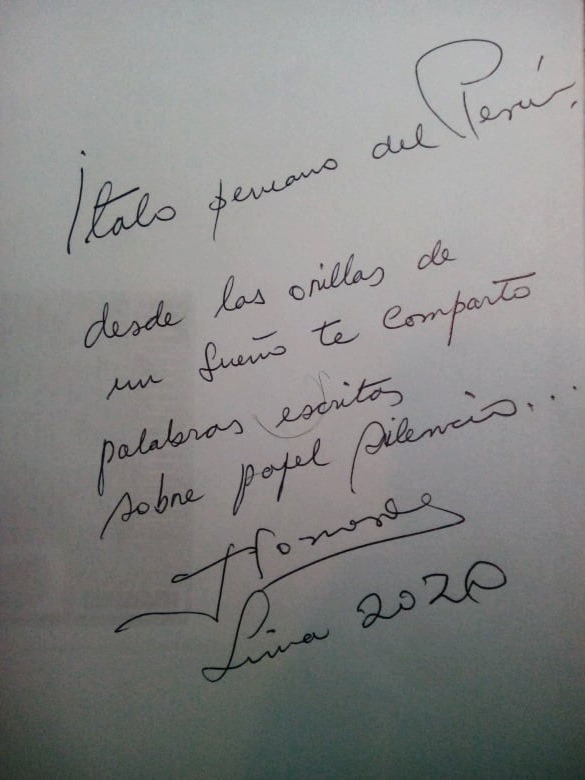 Ítalo peruano del Perú,
desde las orillas de
un sueño te comparto
palabras escritas
sobre papel silencio...
Lima 2020